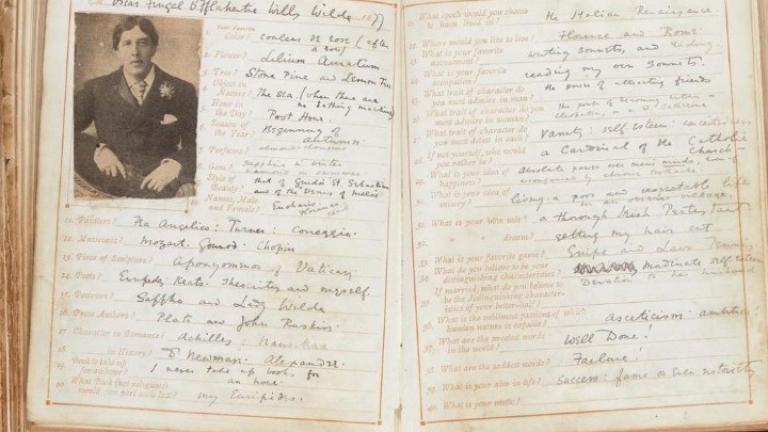 Oscar Fingal O'fflahertie Wills Wilde 1877
1. Your Favorite
Color?
2. Flower? Lilium Auratum
3. Tree? Stone Pine and Lemon Tree
4. Object in
Nature? The Sea (when there are
no bathing machines)
5. Hour in
the Day? Post Hour
6. Season of
the Year? Beginning of
autumn
7. Perfume? almond
8. Gem? sapphire in winter
diamond in summer
9. Style of
Beauty? that of Guido's St. Sebastian
and of the Venus of Melos
10. Names, Male
and Female?
11. Painters? Fra Angelico: Turner: Correggio.
12. Musicians? Mozart. Gounod. Chopin
13. Piece of Sculpture? of Vatican
14. Poets? Euripides Keats. Theocritus and myself.
15. Poetesses? Sappho and Lady Wilde
16. Prose Authors? Plato and John Ruskin
17. Character in Romance? Achilles: Nausikaa
18. in History? Newman. Alexander.
19. Book to take up
for an hour? I never take up books for
an hour.
20. What Book (not religious)
would you part with last? my Euripides.
21. What epoch would you choose
to have lived in? the Italian Renaissance.
22. Where would you like to live? Florence and Rome
23. What is your favorite
amusement? writing sonnets, and riding.
24. What is your favorite
occupation? reading my own sonnets.
25. What trait of character do
you most admire in man? the power of attracting friends
26. What trait of character do
you most admire in women?
27. What trait of character do
you most detest in each? Vanity: self esteem:
28. If not yourself, who would
you rather be? a Cardinal of the Catholic
Church
29. What is your idea of
happiness? absolute power over men's minds, even if
accompanied by chronic toothache
30. What is your idea of
misery? living a poor and respectable life
in an obscure village.
31. What is your bête noire? a thorough Irish Protestant
32. dream? getting my hair cut
33. What is your favorite game? Snipe and Lawn Tennis
34. What do you believe to be your
distinguishing characteristics? inordinate self esteem
35. If married, what do you believe to
be the distinguishing characteristics
of your better-half? Devotion to her husband
36. What is the sublimest passion of which
human nature is capable? asceticism: ambition
37. What are the sweetest words
in the world? Well Done!
38. What are the saddest words? Failure!
39. What is your aim in life? Success: fame or even notoriety
40. What is your motto?